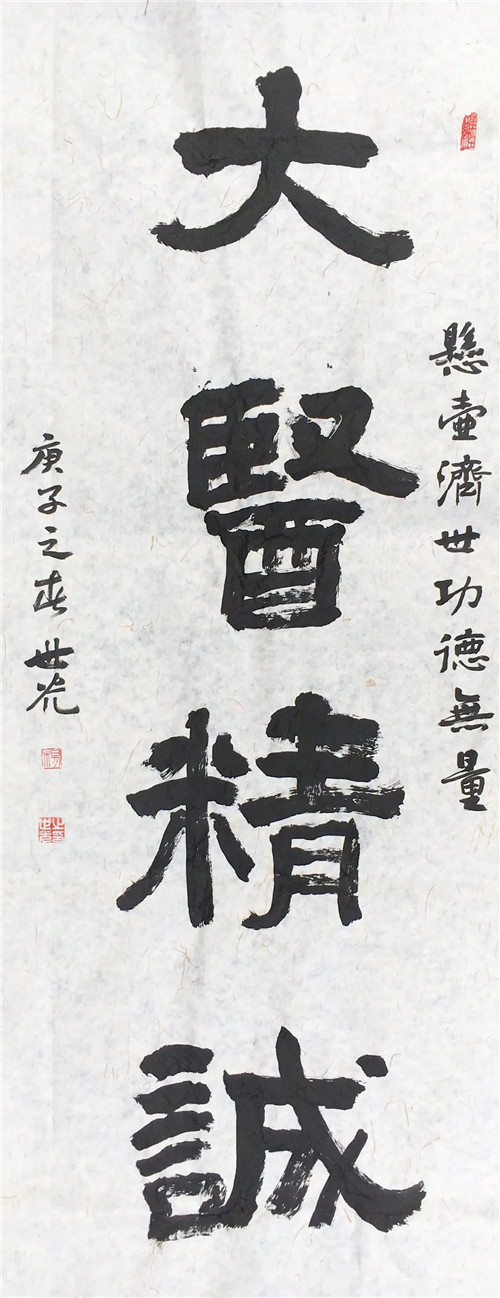 懸壺濟世功德無量
大醫精誠
庚子之春世光